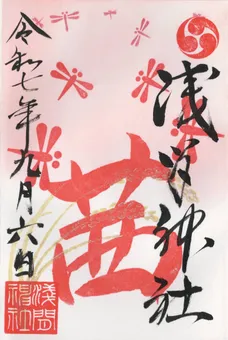 浅間神社
茜
令和七年九月六日
浅間
神社